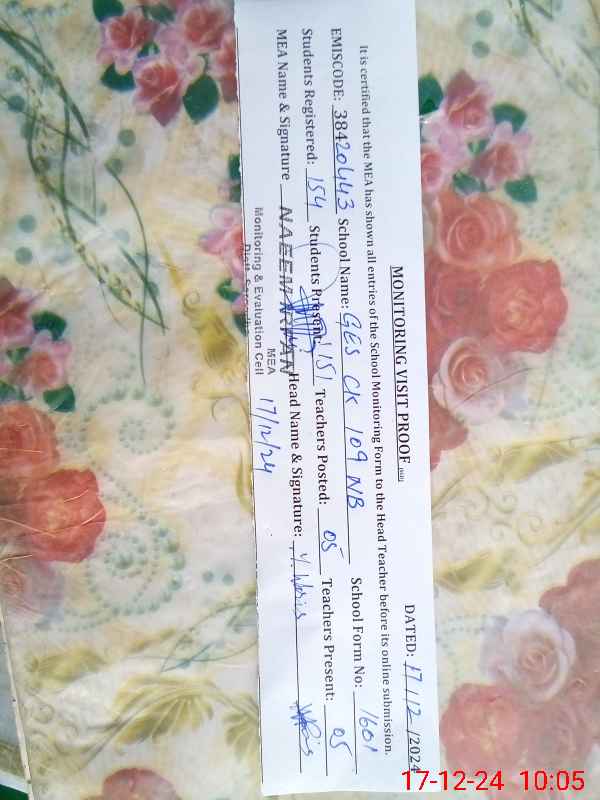 MONITORING VISIT PROOF
DATED: 17/12/2024
It is certified that the MEA has shown all entries of the School Monitoring Form to the Head Teacher before its online submission.
EMISCODE: 38420443 School Name: GES CK 109 NB School Form No: 1601
Students Registered: 154 Students Present: 151 Teachers Posted: 05 Teachers Present: 05
MEA Name & Signature NAEEM Head Name & Signature:
MEA
Monitoring & Evaluation Cell
17/12/24
17-12-24 10:05